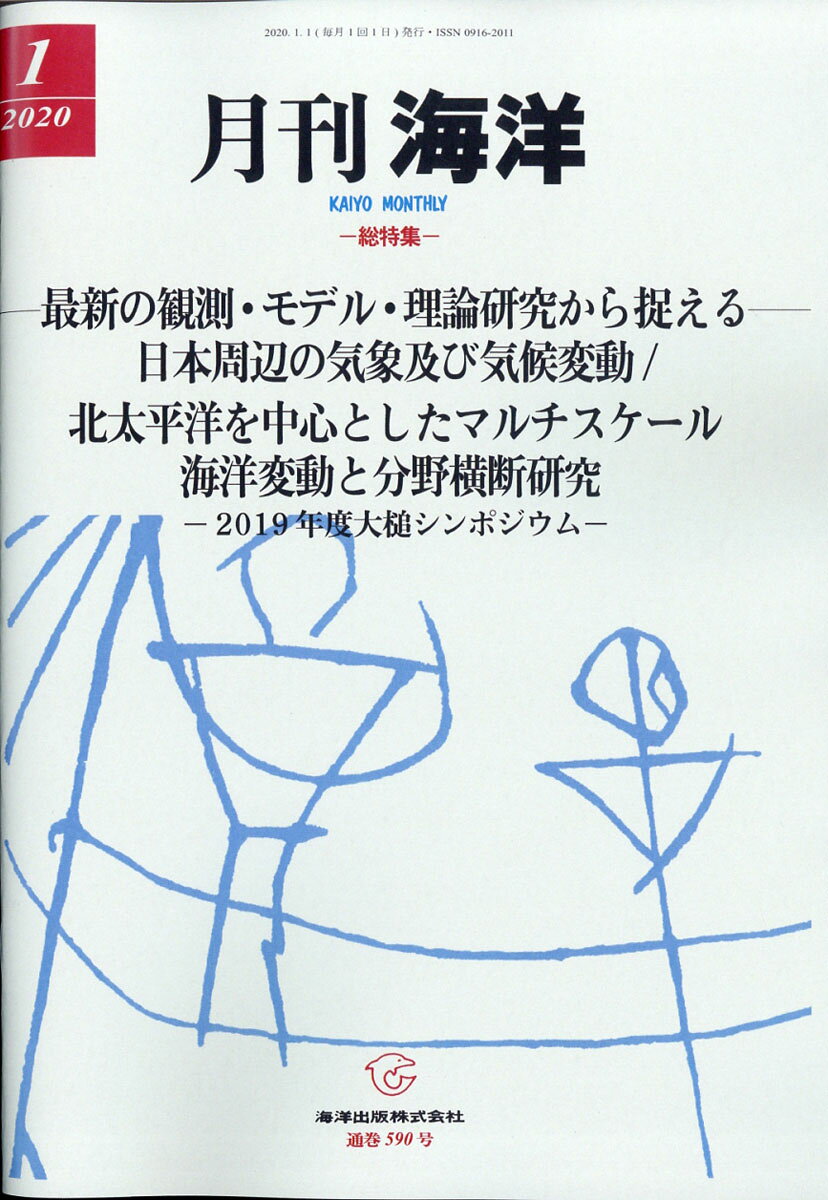 2020. 1. 1 ( 毎月 1 回 1 日 ) 発行・ISSN 0916-2011
1
2020
月刊 海洋
KAIYO MONTHLY
－総特集－
最新の観測・モデル・理論研究から捉える
日本周辺の気象及び気候変動 /
北太平洋を中心としたマルチスケール
海洋変動と分野横断研究
－ 2019 年度大槌シンポジウム－
海洋出版株式会社
通巻 590 号